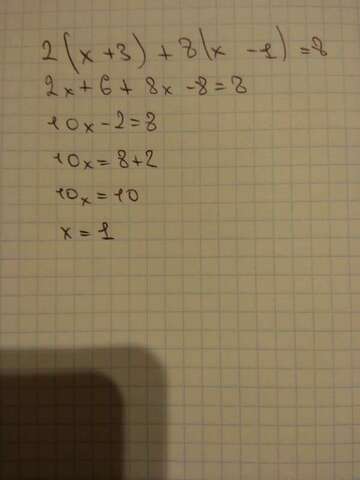 2(x+3)+8(x-1)=8
2x+6+8x-8=8
10x-2=8
10x=8+2
10x=10
x=1